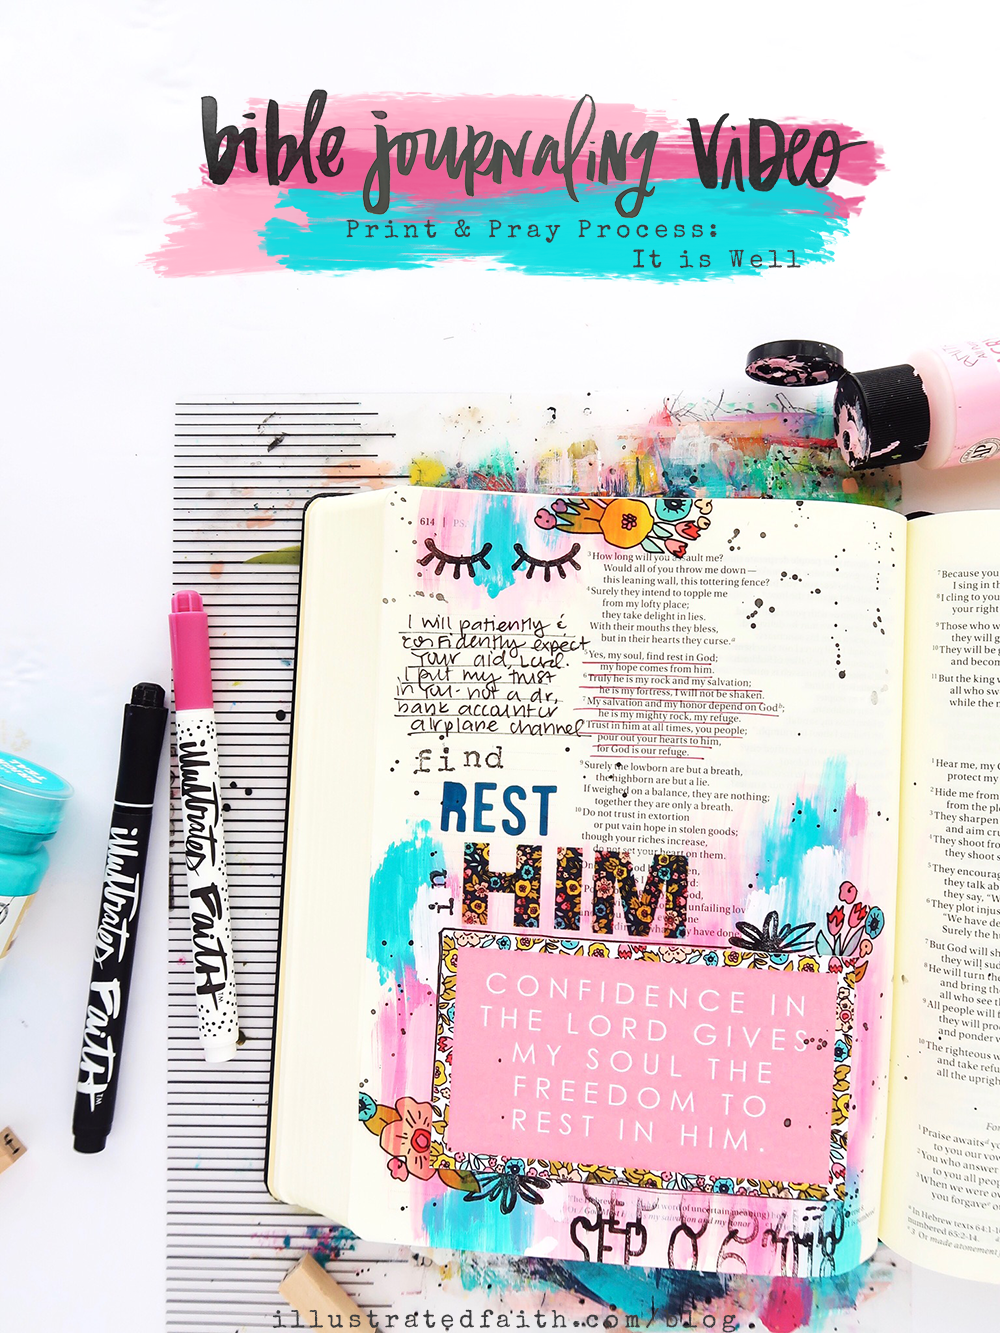 bible journaling video
Print & Pray Process:
It is Well
614 | PS.
³How long will you assault me?
Would all of you throw me down—
this leaning wall, this tottering fence?
⁴Surely they intend to topple me
from my lofty place;
they take delight in lies.
With their mouths they bless,
but in their hearts they curse.ᵃ
⁵Yes, my soul, find rest in God;
my hope comes from him.
⁶Truly he is my rock and my salvation;
he is my fortress, I will not be shaken.
⁷My salvation and my honor depend on Godᵇ;
he is my mighty rock, my refuge.
⁸Trust in him at all times, you people;
pour out your hearts to him,
for God is our refuge.
⁹Surely the lowborn are but a breath,
the highborn are but a lie.
If weighed on a balance, they are nothing;
together they are only a breath.
¹⁰Do not trust in extortion
or put vain hope in stolen goods;
though your riches increase,
do not set your heart on them.
I will patiently &
confidently expect
your aid, Lord.
I put my trust
in you - not a dr,
bank account or
airplane channel
find
REST
in
HIM
CONFIDENCE IN
THE LORD GIVES
MY SOUL THE
FREEDOM TO
REST IN HIM.
SEP
⁷Because you
I sing in th
⁸I cling to you
your right
⁹Those who w
they will g
¹⁰They will be g
and becom
¹¹But the king w
all who sw
while the m
¹Hear me, my G
protect my
²Hide me from
from the pl
³They sharpen
and aim cru
⁴They shoot fro
they shoot s
⁵They encourag
they talk ab
they say, “W
⁶They plot injus
“We have de
Surely the hu
⁷But God will sh
they will sud
⁸He will turn the
and bring the
all who see th
⁹All people will f
they will proc
and ponder w
¹⁰The righteous w
and take refu
all the uprigh
¹Praise awaitsᵈ y
to you our vov
²You who answer
to you all peop
³When we were o
you forgaveᵉ o
ᵃIn Hebrew texts 64:1-1
numbered 65:2-14.
ᵉ3 Or made atonement f
illustrated Faith™
illustrated Faith™
illustratedfaith.com/blog